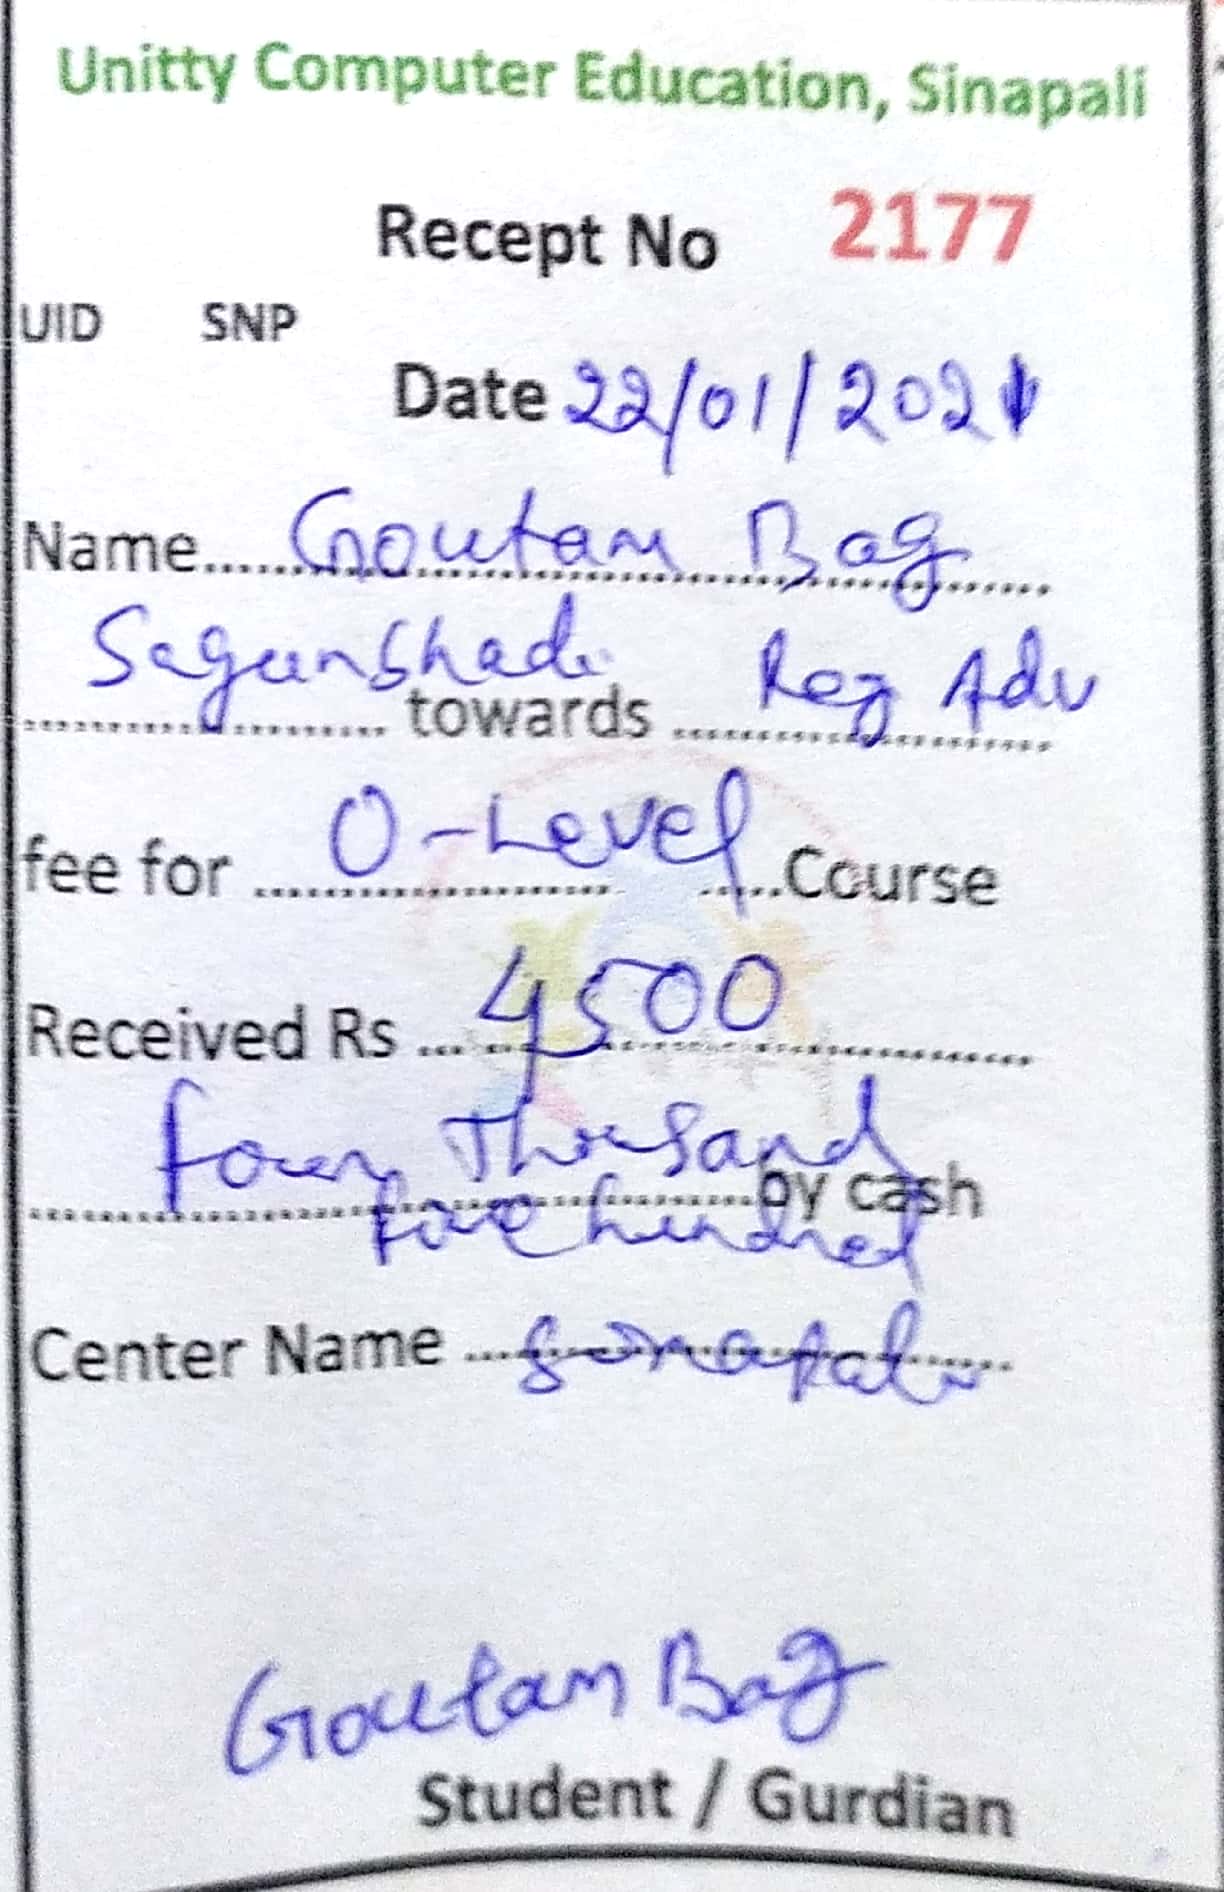 Unitty Computer Education, Sinapali
Recept No 2177
UID SNP
Date 22/01/2021
Name.....Goutam Bag
Sagunbhadi towards Reg Adv
fee for O-Level Course
Received Rs 4500
four Thousand
five hundred by cash
Center Name Sinapali
Goutam Bag
Student / Gurdian